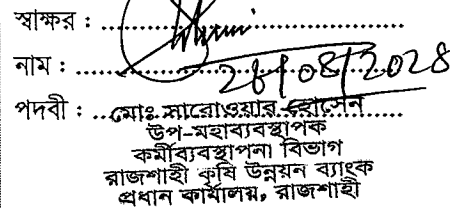 স্বাক্ষর : ..............................
নাম : ..............................
26/08/2028
পদবী : ...মোঃ সারোওয়ার হোসেন...
উপ-মহাব্যবস্থাপক
কর্মীব্যবস্থাপনা বিভাগ
রাজশাহী কৃষি উন্নয়ন ব্যাংক
প্রধান কার্যালয়, রাজশাহী